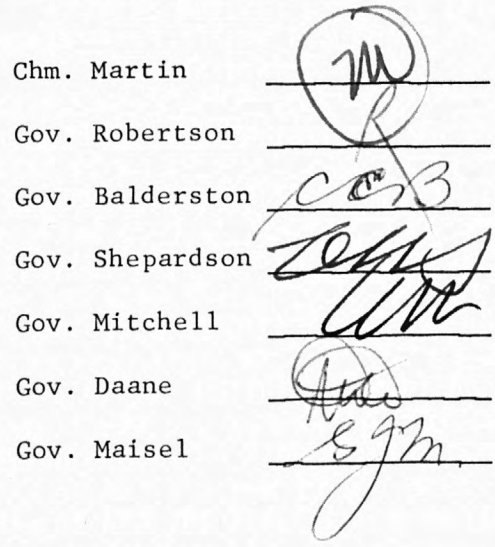 Chm. Martin M
Gov. Robertson R
Gov. Balderston CCB
Gov. Shepardson
Gov. Mitchell
Gov. Daane
Gov. Maisel SJM